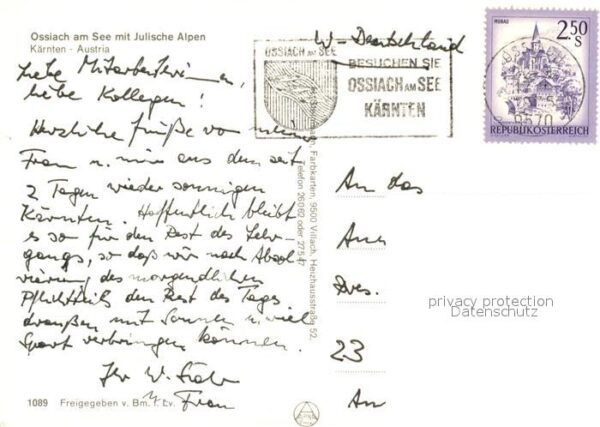 Ossiach am See mit Julische Alpen
Kärnten - Austria
W-Deutschland
OSSIACH AM SEE
BESUCHEN SIE
OSSIACH AM SEE
KÄRNTEN
MURAU
2.50
S
9570
REPUBLIK ÖSTERREICH
Liebe Mitarbeiterinnen,
liebe Kollegen!
Herzliche Grüße von meiner
Frau u. mir aus dem seit
2 Tagen wieder sonnigen
Kärnten. Hoffentlich bleibt
es so für den Rest des Lehr-
gangs, so daß wir nach Absol-
vierung des morgendlichen
Pflichtteils den Rest des Tages
draußen mit Sonnen u. viel
Sport verbringen können.
Ihr W.
u. Frau
Farbkarten, 9500 Villach, Heizhausstraße 52,
Telefon 26062 oder 27547
An das
Dres.
23
An
privacy protection
Datenschutz
1089 Freigegeben v. Bm. f. Lv.